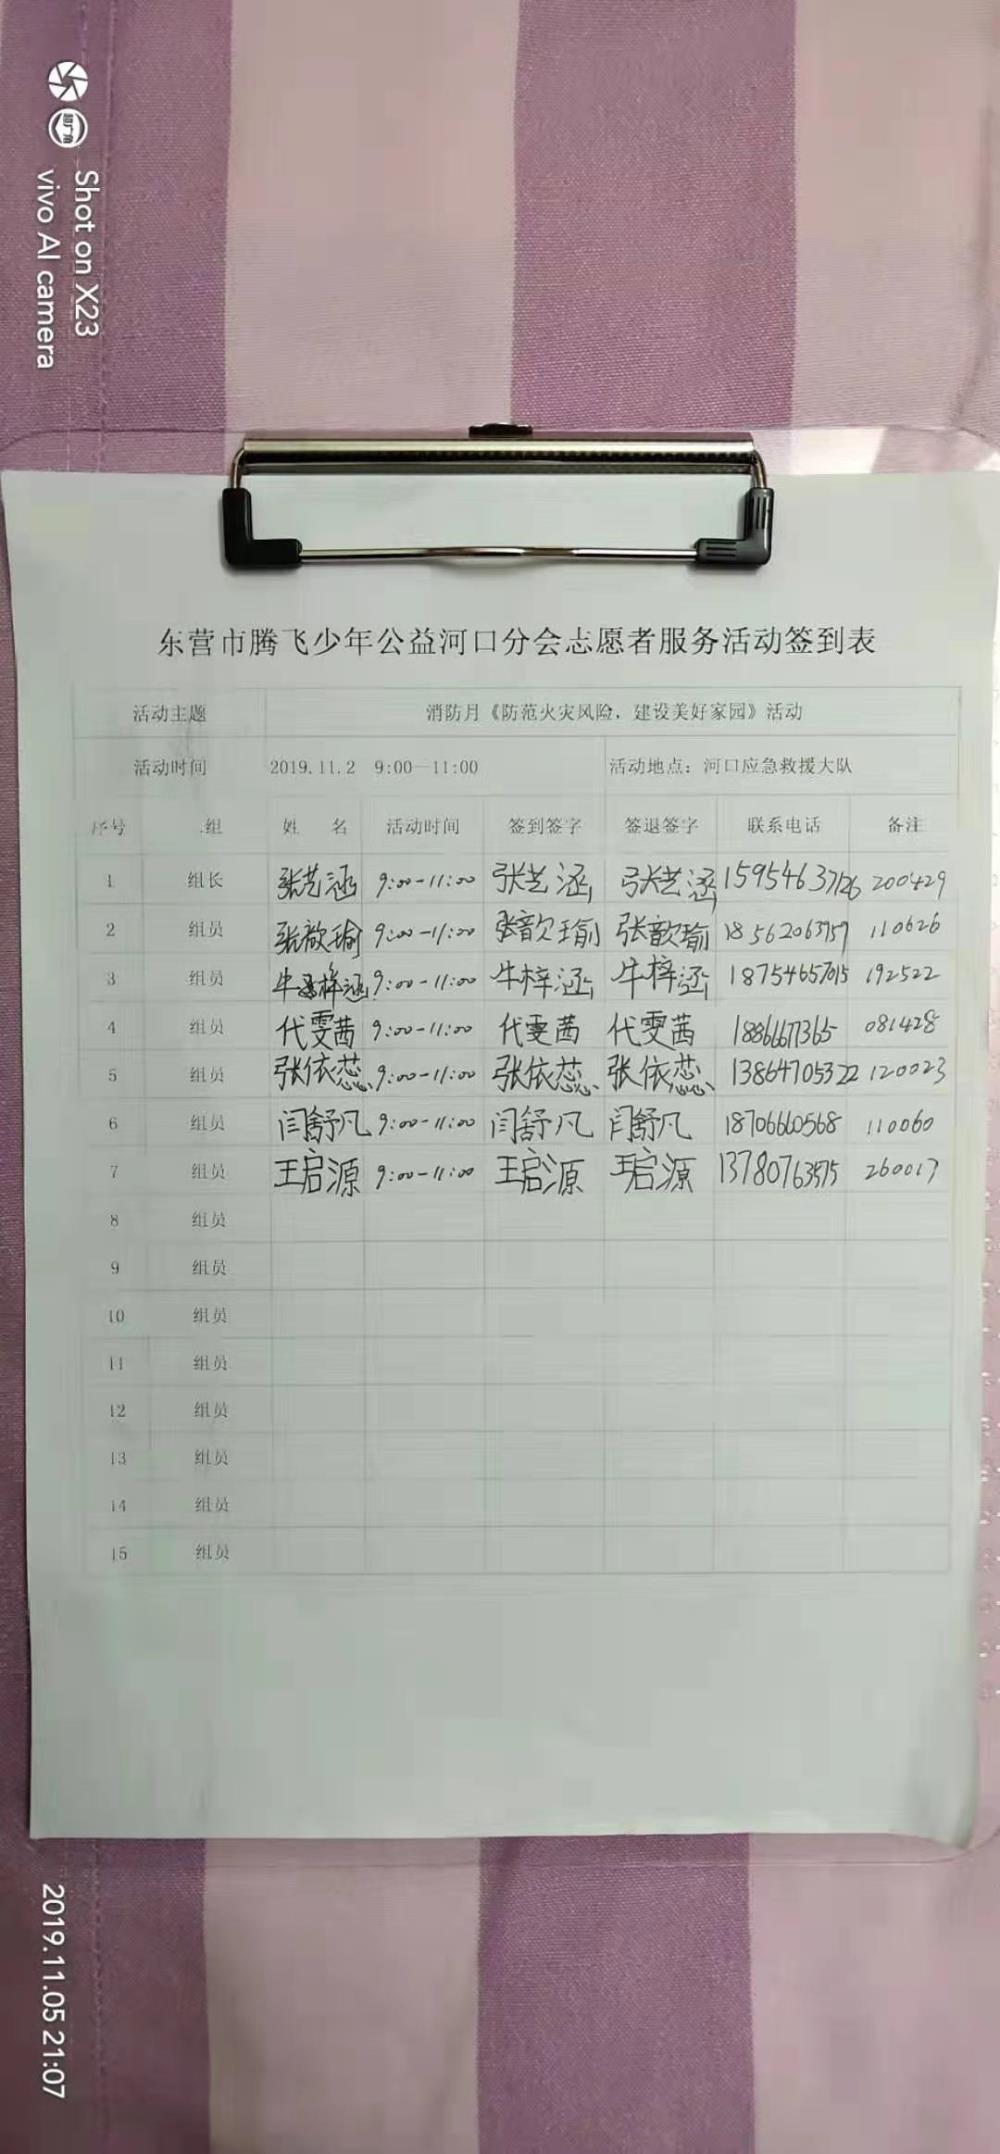 Shot on X23
vivo AI camera
东营市腾飞少年公益河口分会志愿者服务活动签到表
活动主题 消防月《防范火灾风险，建设美好家园》活动
活动时间 2019.11.2 9:00—11:00 活动地点：河口应急救援大队
序号 组 姓 名 活动时间 签到签字 签退签字 联系电话 备注
1 组长 张艺涵 9:00-11:00 张艺涵 张艺涵 15954637126 200429
2 组员 张歆瑜 9:00-11:00 张歆瑜 张歆瑜 18562063759 110626
3 组员 牛梓涵 9:00-11:00 牛梓涵 牛梓涵 18754657015 192522
4 组员 代雯茜 9:00-11:00 代雯茜 代雯茜 18866677365 081428
5 组员 张依蕊 9:00-11:00 张依蕊 张依蕊 13864705322 120023
6 组员 闫舒凡 9:00-11:00 闫舒凡 闫舒凡 18706660568 110060
7 组员 王启源 9:00-11:00 王启源 王启源 13780763575 260017
8 组员
9 组员
10 组员
11 组员
12 组员
13 组员
14 组员
15 组员
2019.11.05 21:07